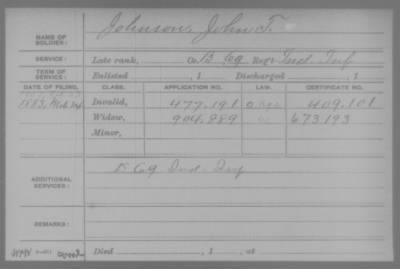 NAME OF SOLDIER: Johnson, John T.
SERVICE: Late rank, Co. B 69 Reg't Ind. Inf
TERM OF SERVICE: Enlisted , 1 Discharged , 1
DATE OF FILING. CLASS. APPLICATION NO. LAW. CERTIFICATE NO.
1883, Invalid, 477.191 409.101
Widow, 904.889 673193
Minor,
ADDITIONAL SERVICES: B 69 Ind. Inf
REMARKS:
Died , 1 , at